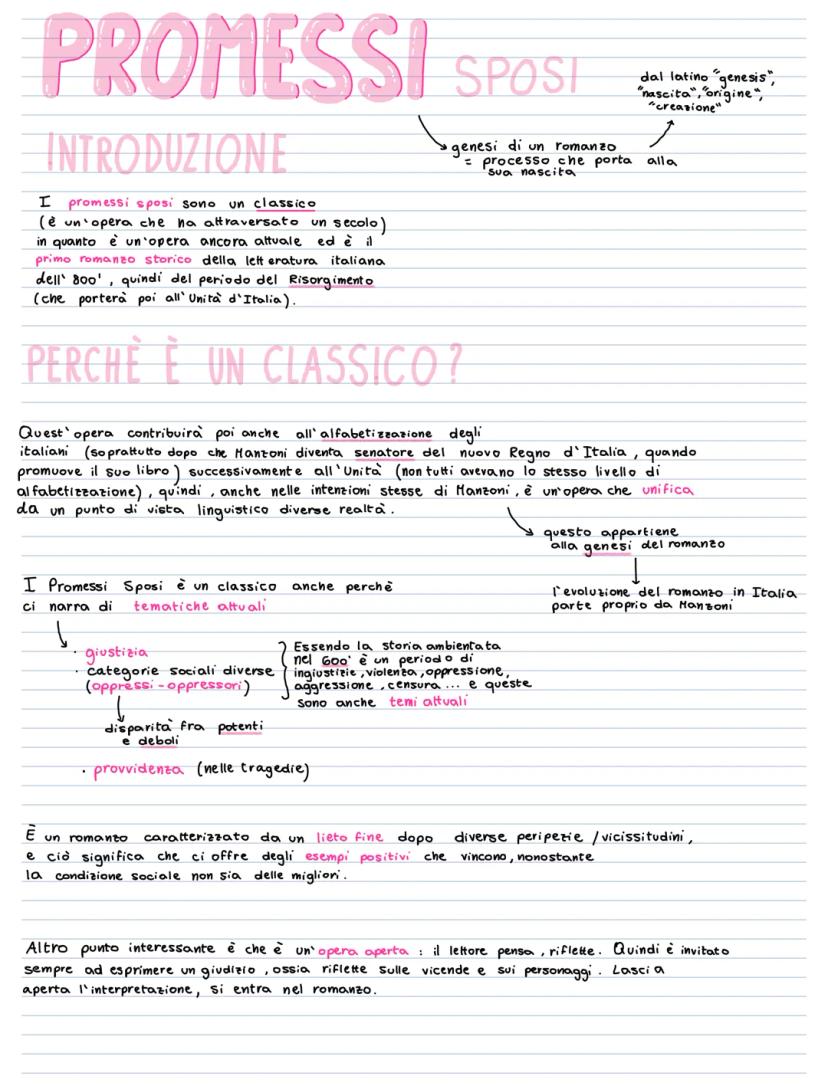 PROMESSI SPOSI
dal latino "genesis",
"nascita", "origine",
"creazione"
genesi di un romanzo
= processo che porta alla
sua nascita
INTRODUZIONE
I promessi sposi sono un classico
(è un'opera che ha attraversato un secolo)
in quanto è un'opera ancora attuale ed è il
primo romanzo storico della letteratura italiana
dell'800', quindi del periodo del Risorgimento
(che porterà poi all'Unità d'Italia).
PERCHÈ È UN CLASSICO?
Quest'opera contribuirà poi anche all'alfabetizzazione degli
italiani (soprattutto dopo che Manzoni diventa senatore del nuovo Regno d'Italia, quando
promuove il suo libro) successivamente all'Unità (non tutti avevano lo stesso livello di
alfabetizzazione), quindi, anche nelle intenzioni stesse di Manzoni, è un'opera che unifica
da un punto di vista linguistico diverse realtà.
questo appartiene
alla genesi del romanzo
l'evoluzione del romanzo in Italia
parte proprio da Manzoni
I Promessi Sposi è un classico anche perchè
ci narra di tematiche attuali
· giustizia
· categorie sociali diverse
(oppressi-oppressori)
disparità fra potenti
e deboli
Essendo la storia ambientata
nel 600' è un periodo di
ingiustizie, violenza, oppressione,
aggressione, censura ... e queste
sono anche temi attuali
· provvidenza (nelle tragedie)
È un romanzo caratterizzato da un lieto fine dopo diverse peripezie /vicissitudini,
e ciò significa che ci offre degli esempi positivi che vincono, nonostante
la condizione sociale non sia delle migliori.
Altro punto interessante è che è un'opera aperta : il lettore pensa, riflette. Quindi è invitato
sempre ad esprimere un giudizio, ossia riflette sulle vicende e sui personaggi. Lascia
aperta l'interpretazione, si entra nel romanzo.